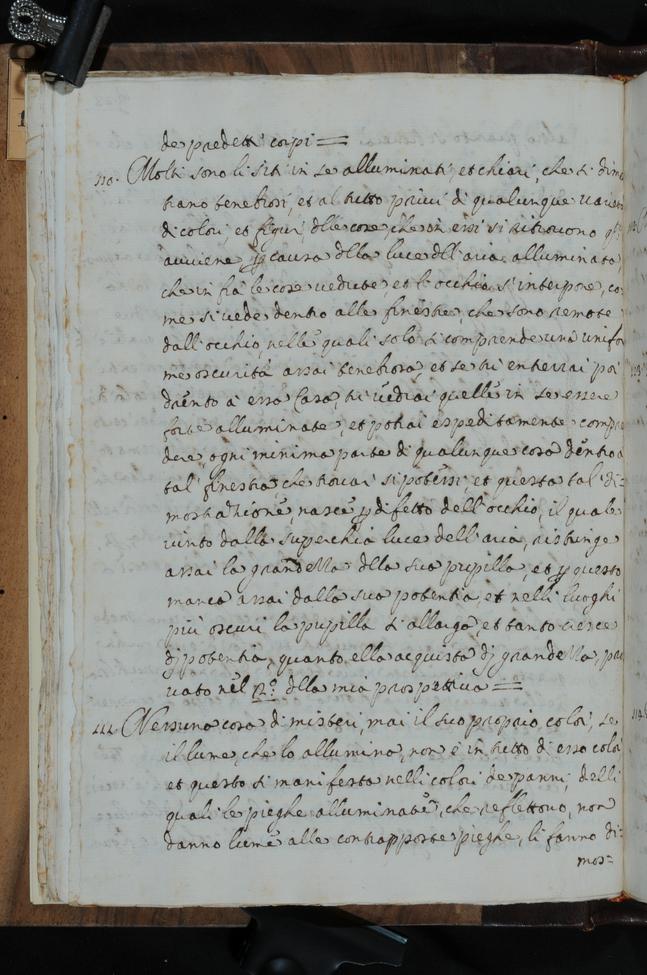 de predetti corpi =
110. Molti sono li siti in se alluminati, et chiari, che si dimo
strano tenebrosi, et al tutto privi di qualunque varietà
di colori, et figuri, dlle cose, che in essi si ritrovono q.to
avviene ꝑ causa dlla luce dll'aria alluminata
che in frà le cose vedute, et l'occhio s'interpone, co
me si vede dentro alle finestre, che sono remote
dall'occhio, nelle quali solo si comprende una unifor
me oscurità assai tenebrosa et se tu enterrai poi
drento a essa Casa, tu vedrai quelle in se essere
forte alluminate, et potrai espeditamente compre
dere ogni minima parte di qualunque cosa dentro a
tal' finestra, che trovar si potessi et questa tal' di=
mostrazione, nasce ꝑ difetto dell'occhio, il quale
vinto dalla superchia luce dell'aria, ristringe
assai la grandezza dlla sua pupilla, et ꝑ questo
manca assai dalla sua potentia, et nelli luoghi
più oscuri la pupilla si allarga, et tanto cresce
di potentia, quanto ella acquista di grandezza, pro
vato nel 2.º dlla mia prospettiva =
111. Nessuna cosa di misteri, mai il suo proprio color, se
il lume, che lo allumina, non è in tutto di esso color
et questo si manifesta nelli colori de panni, delli
quali le pieghe alluminate, che reflettono, non
danno lume alle contrapposte pieghe, li fanno di=
mos=